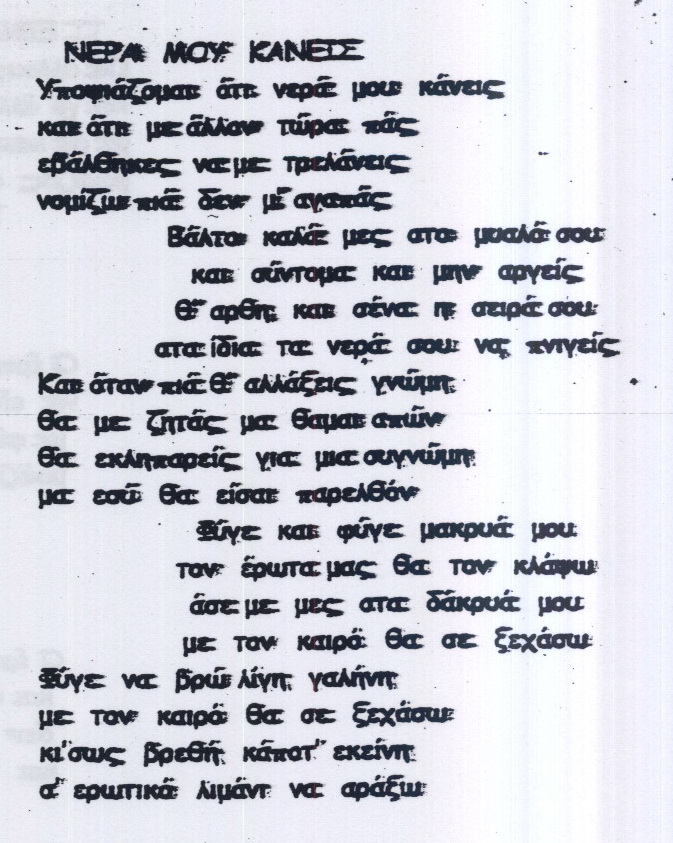 ΝΕΡΑ ΜΟΥ ΚΑΝΕΙΣ
Υποψιάζομαι ότι νερά μου κάνεις
και ότι με άλλον τώρα πάς
εβάλθηκες να με τρελάνεις
νομίζω πιά δεν μ' αγαπάς
Βάλτο καλά μες στο μυαλό σου
και σύντομα και μην αργείς
θ' αρθη και σένα η σειρά σου
στα ίδια τα νερά σου να πνιγείς
Και όταν πιά θ' αλλάξεις γνώμη
θα με ζητάς μα θαμαι απών
θα εκληπαρείς για μια συγνώμη
μα εσύ θα είσαι παρελθόν
Φύγε και φύγε μακρυά μου
τον έρωτα μας θα τον κλάψω
άσε με μες στα δάκρυά μου
με τον καιρό θα σε ξεχάσω
Φύγε να βρώ λίγη γαλήνη
με τον καιρό θα σε ξεχάσω
κι'σως βρεθή κάποτ' εκείνη
σ' ερωτικό λιμάνι να αράξω